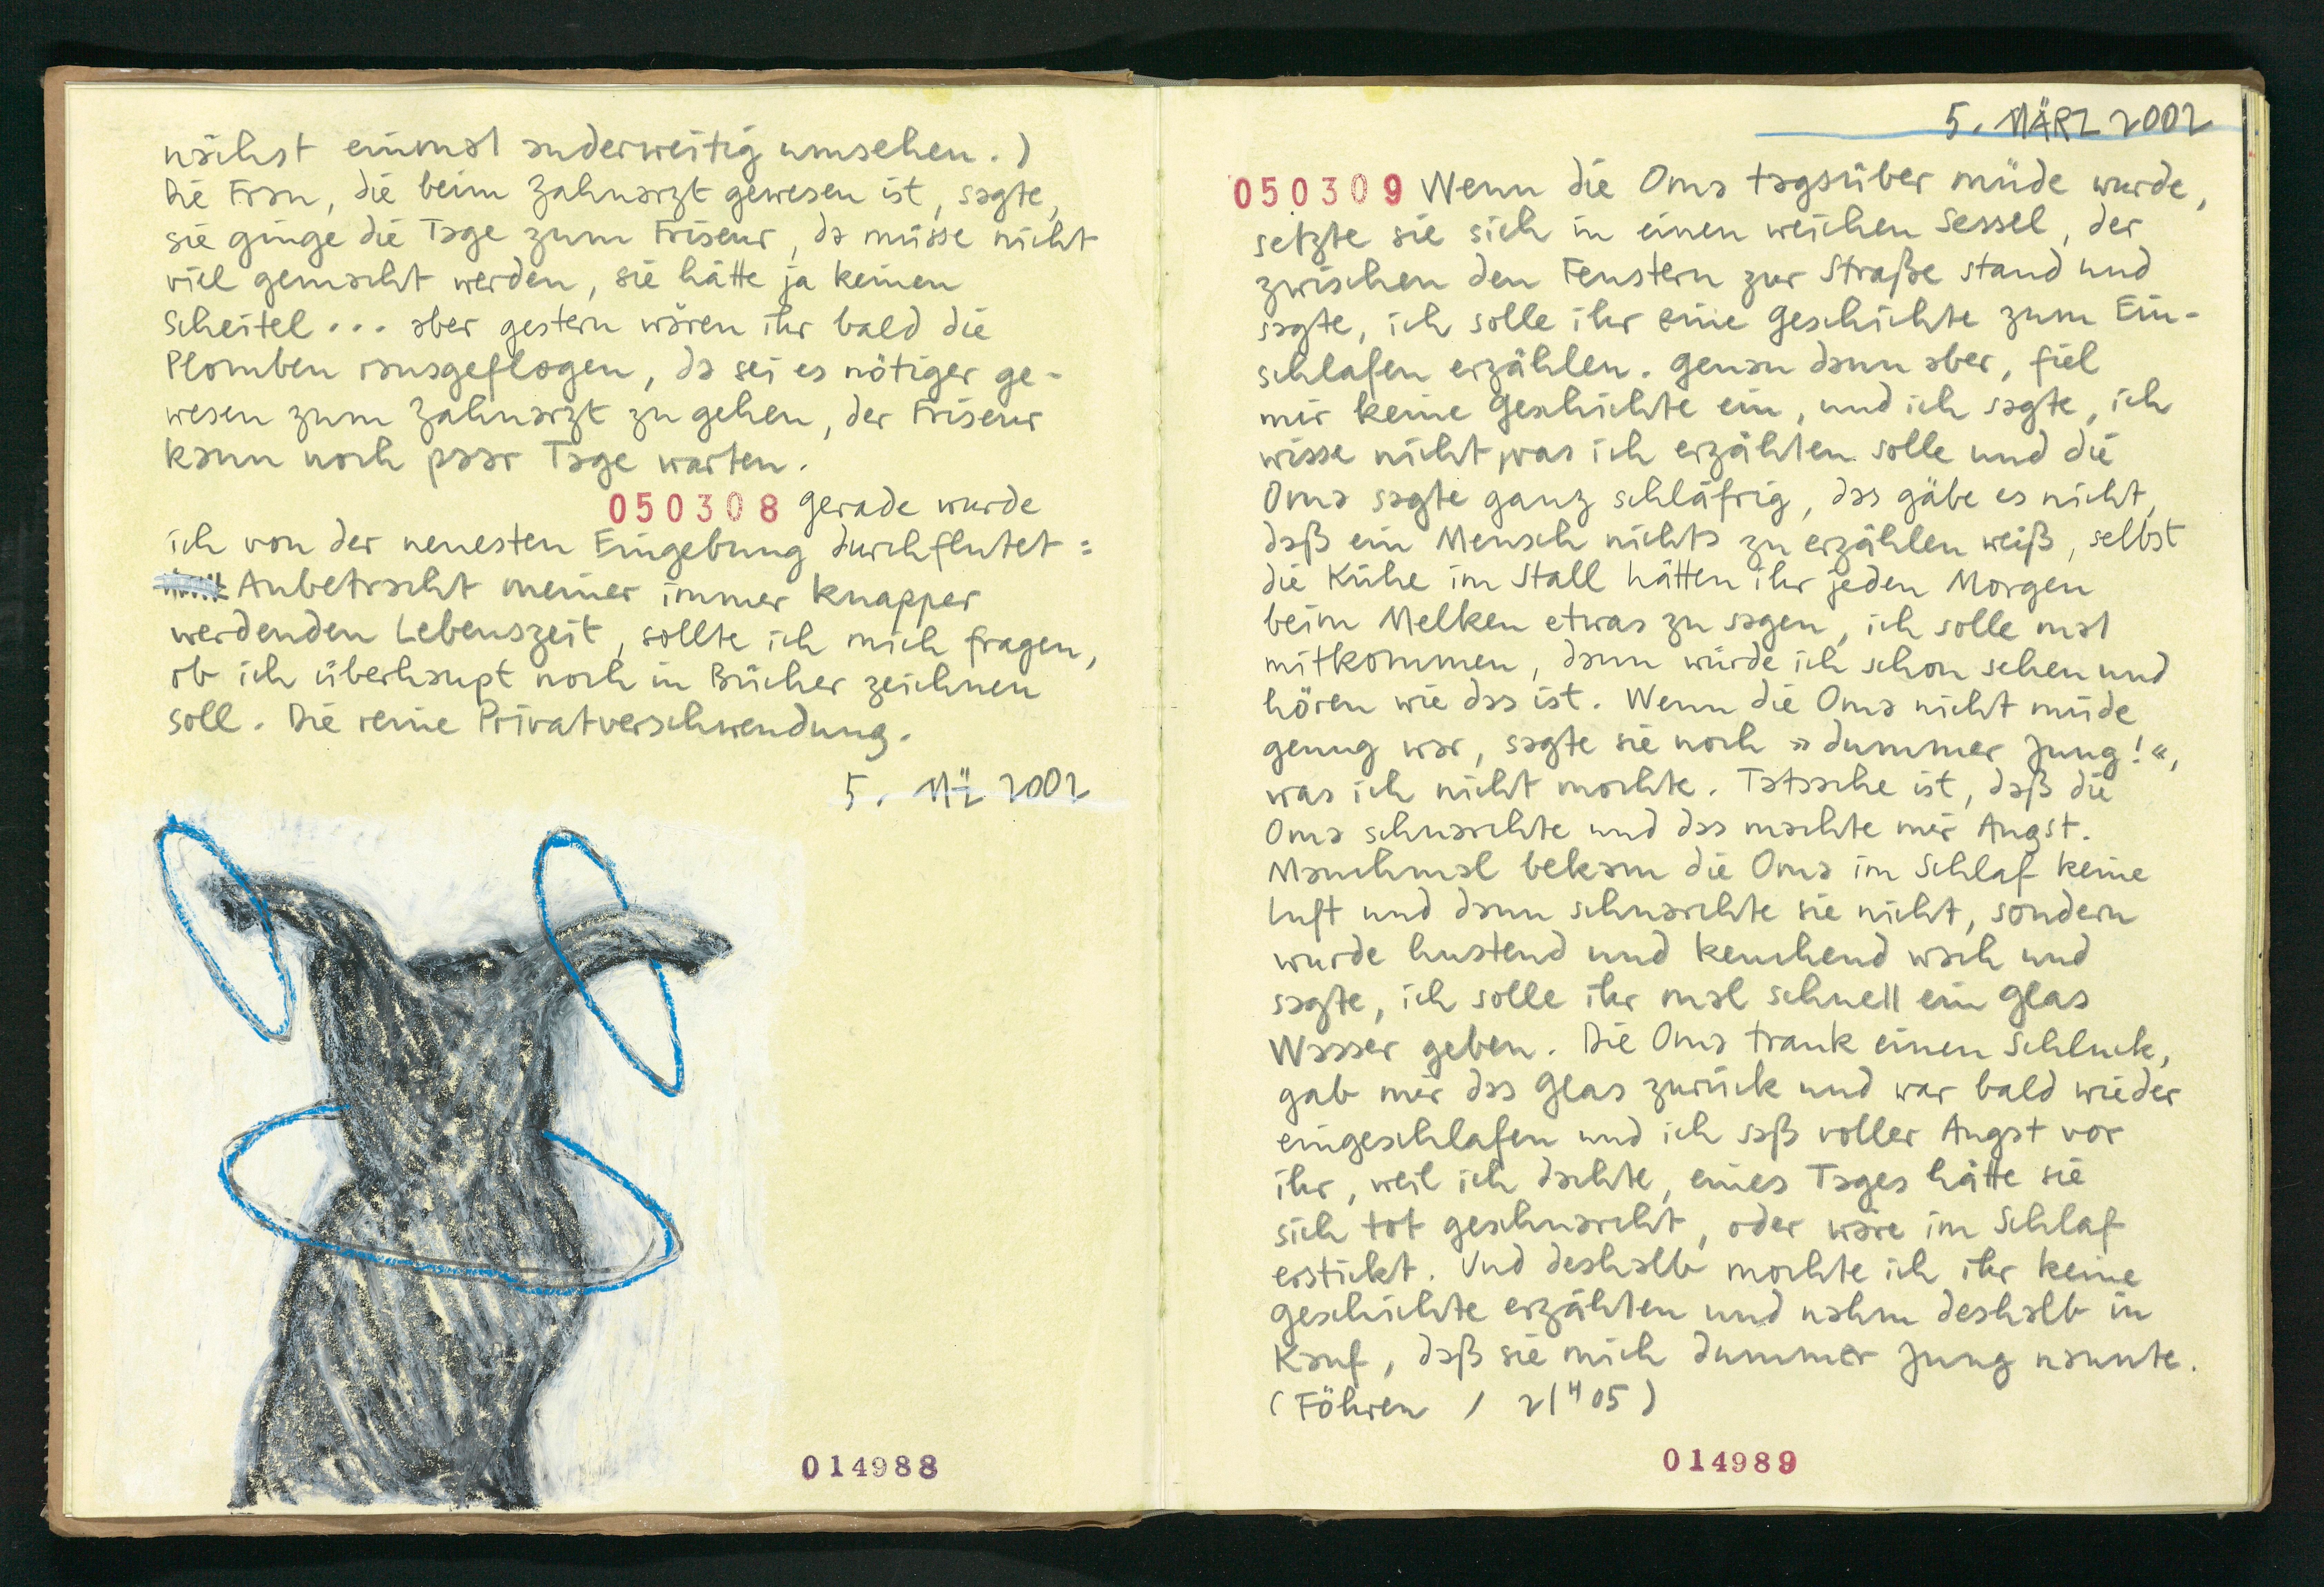 nächst einmal anderweitig umsehen.)
Die Frau, die beim Zahnarzt gewesen ist, sagte,
sie ginge die Tage zum Friseur, da müsse nicht
viel gemacht werden, sie hätte ja keinen
Scheitel... aber gestern wären ihr bald die
Plomben rausgeflogen, da sei es nötiger ge-
wesen zum Zahnarzt zu gehen, der Friseur
kann noch paar Tage warten.
050308 Gerade wurde
ich von der neuesten Eingebung durchflutet:
Anbetracht meiner immer knapper
werdenden Lebenszeit, sollte ich mich fragen,
ob ich überhaupt noch in Bücher zeichnen
soll. Die reine Privatverschwendung.
5. MÄ 2002
014988
5. MÄRZ 2002
050309 Wenn die Oma tagsüber müde wurde,
setzte sie sich in einen weichen Sessel, der
zwischen den Fenstern zur Straße stand und
sagte, ich solle ihr eine Geschichte zum Ein-
schlafen erzählen. Genau dann aber, fiel
mir keine Geschichte ein, und ich sagte, ich
wisse nicht, was ich erzählen solle und die
Oma sagte ganz schläfrig, das gäbe es nicht,
daß ein Mensch nichts zu erzählen weiß, selbst
die Kühe im Stall hätten ihr jeden Morgen
beim Melken etwas zu sagen, ich solle mal
mitkommen, dann würde ich schon sehen und
hören wie das ist. Wenn die Oma nicht müde
genug war, sagte sie noch »dummer Jung!«,
was ich nicht mochte. Tatsache ist, daß die
Oma schnarchte und das machte mir Angst.
Manchmal bekam die Oma im Schlaf keine
Luft und dann schnarchte sie nicht, sondern
wurde hustend und keuchend wach und
sagte, ich solle ihr mal schnell ein Glas
Wasser geben. Die Oma trank einen Schluck,
gab mir das Glas zurück und war bald wieder
eingeschlafen und ich saß voller Angst vor
ihr, weil ich dachte, eines Tages hätte sie
sich tot geschnarcht, oder wäre im Schlaf
erstickt. Und deshalb mochte ich ihr keine
Geschichte erzählen und nahm deshalb in
Kauf, daß sie mich dummer Jung nannte.
(Föhren / 21H05)
014989